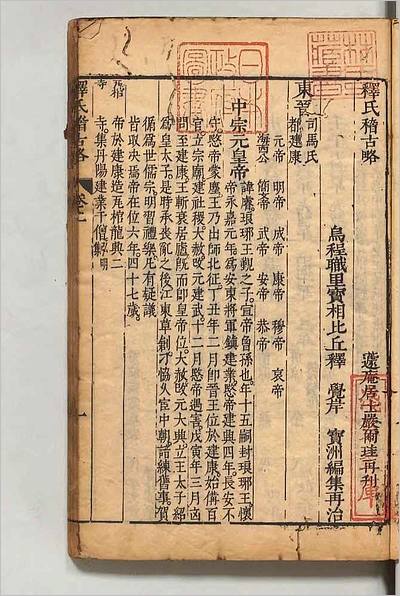 釋氏稽古略
居士嚴爾珪再刊
烏程職里寶相比丘釋 覺岸 寶洲編集再治
東晉 司馬氏
都建康
元帝 明帝 成帝 康帝 穆帝 哀帝
海西公 簡文 武帝 安帝 恭帝
中宗元皇帝
諱睿琅琊王覲之子宣帝曾孫也年十五嗣封琅琊王懷
帝永嘉元年為安東將軍鎮建業愍帝建興四年長安不
守愍帝蒙塵王乃出師北征丁丑年二月即晉王位於建康始備百
官立宗廟建社稷大赦改元建武十二月愍帝遇害戊寅年三月凶
問至建康王斬衰居廬既而即皇帝位大赦改元大興立王太子紹
為皇太子是時承喪亂之後江東草創刁協久宦中朝諳練舊事賀
循為世儒宗明習禮樂凡有疑議
皆取決焉帝在位六年四十七歲
帝於建康造瓦棺龍興二
寺集丹陽建業千僧
釋氏稽古略 卷二 一